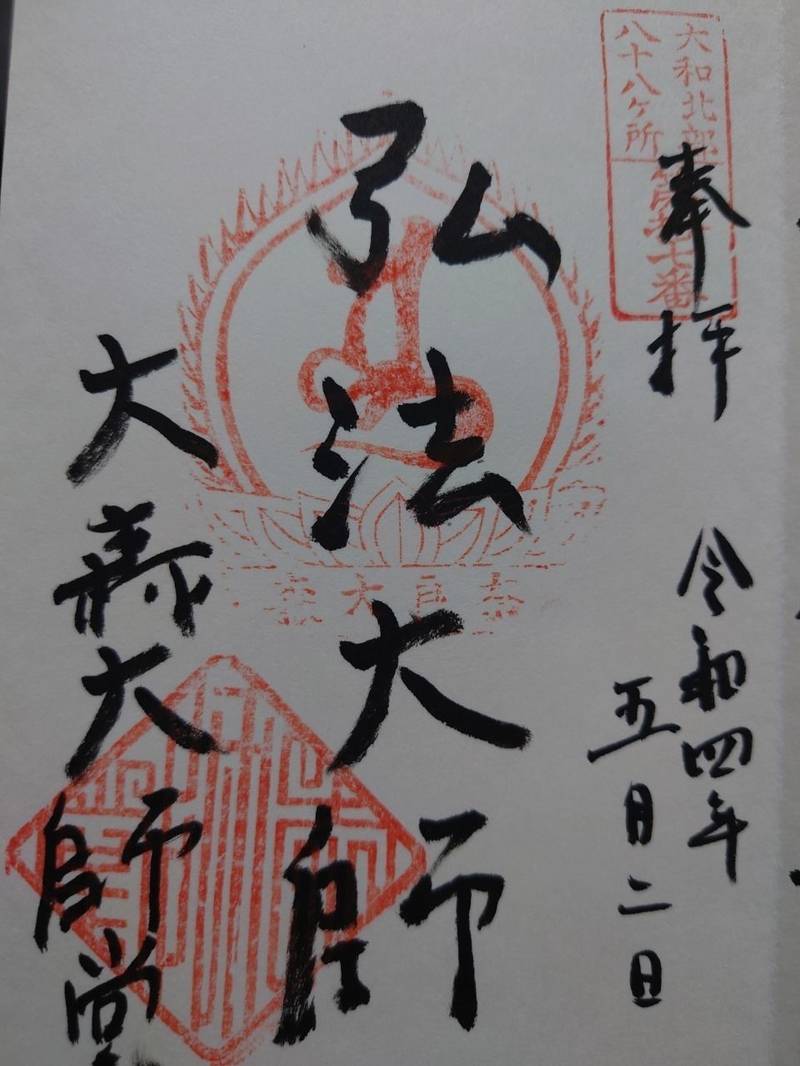 大和北部
八十八ヶ所
七番
奉拝
令和四年
五月二日
弘法大師
大 大師堂